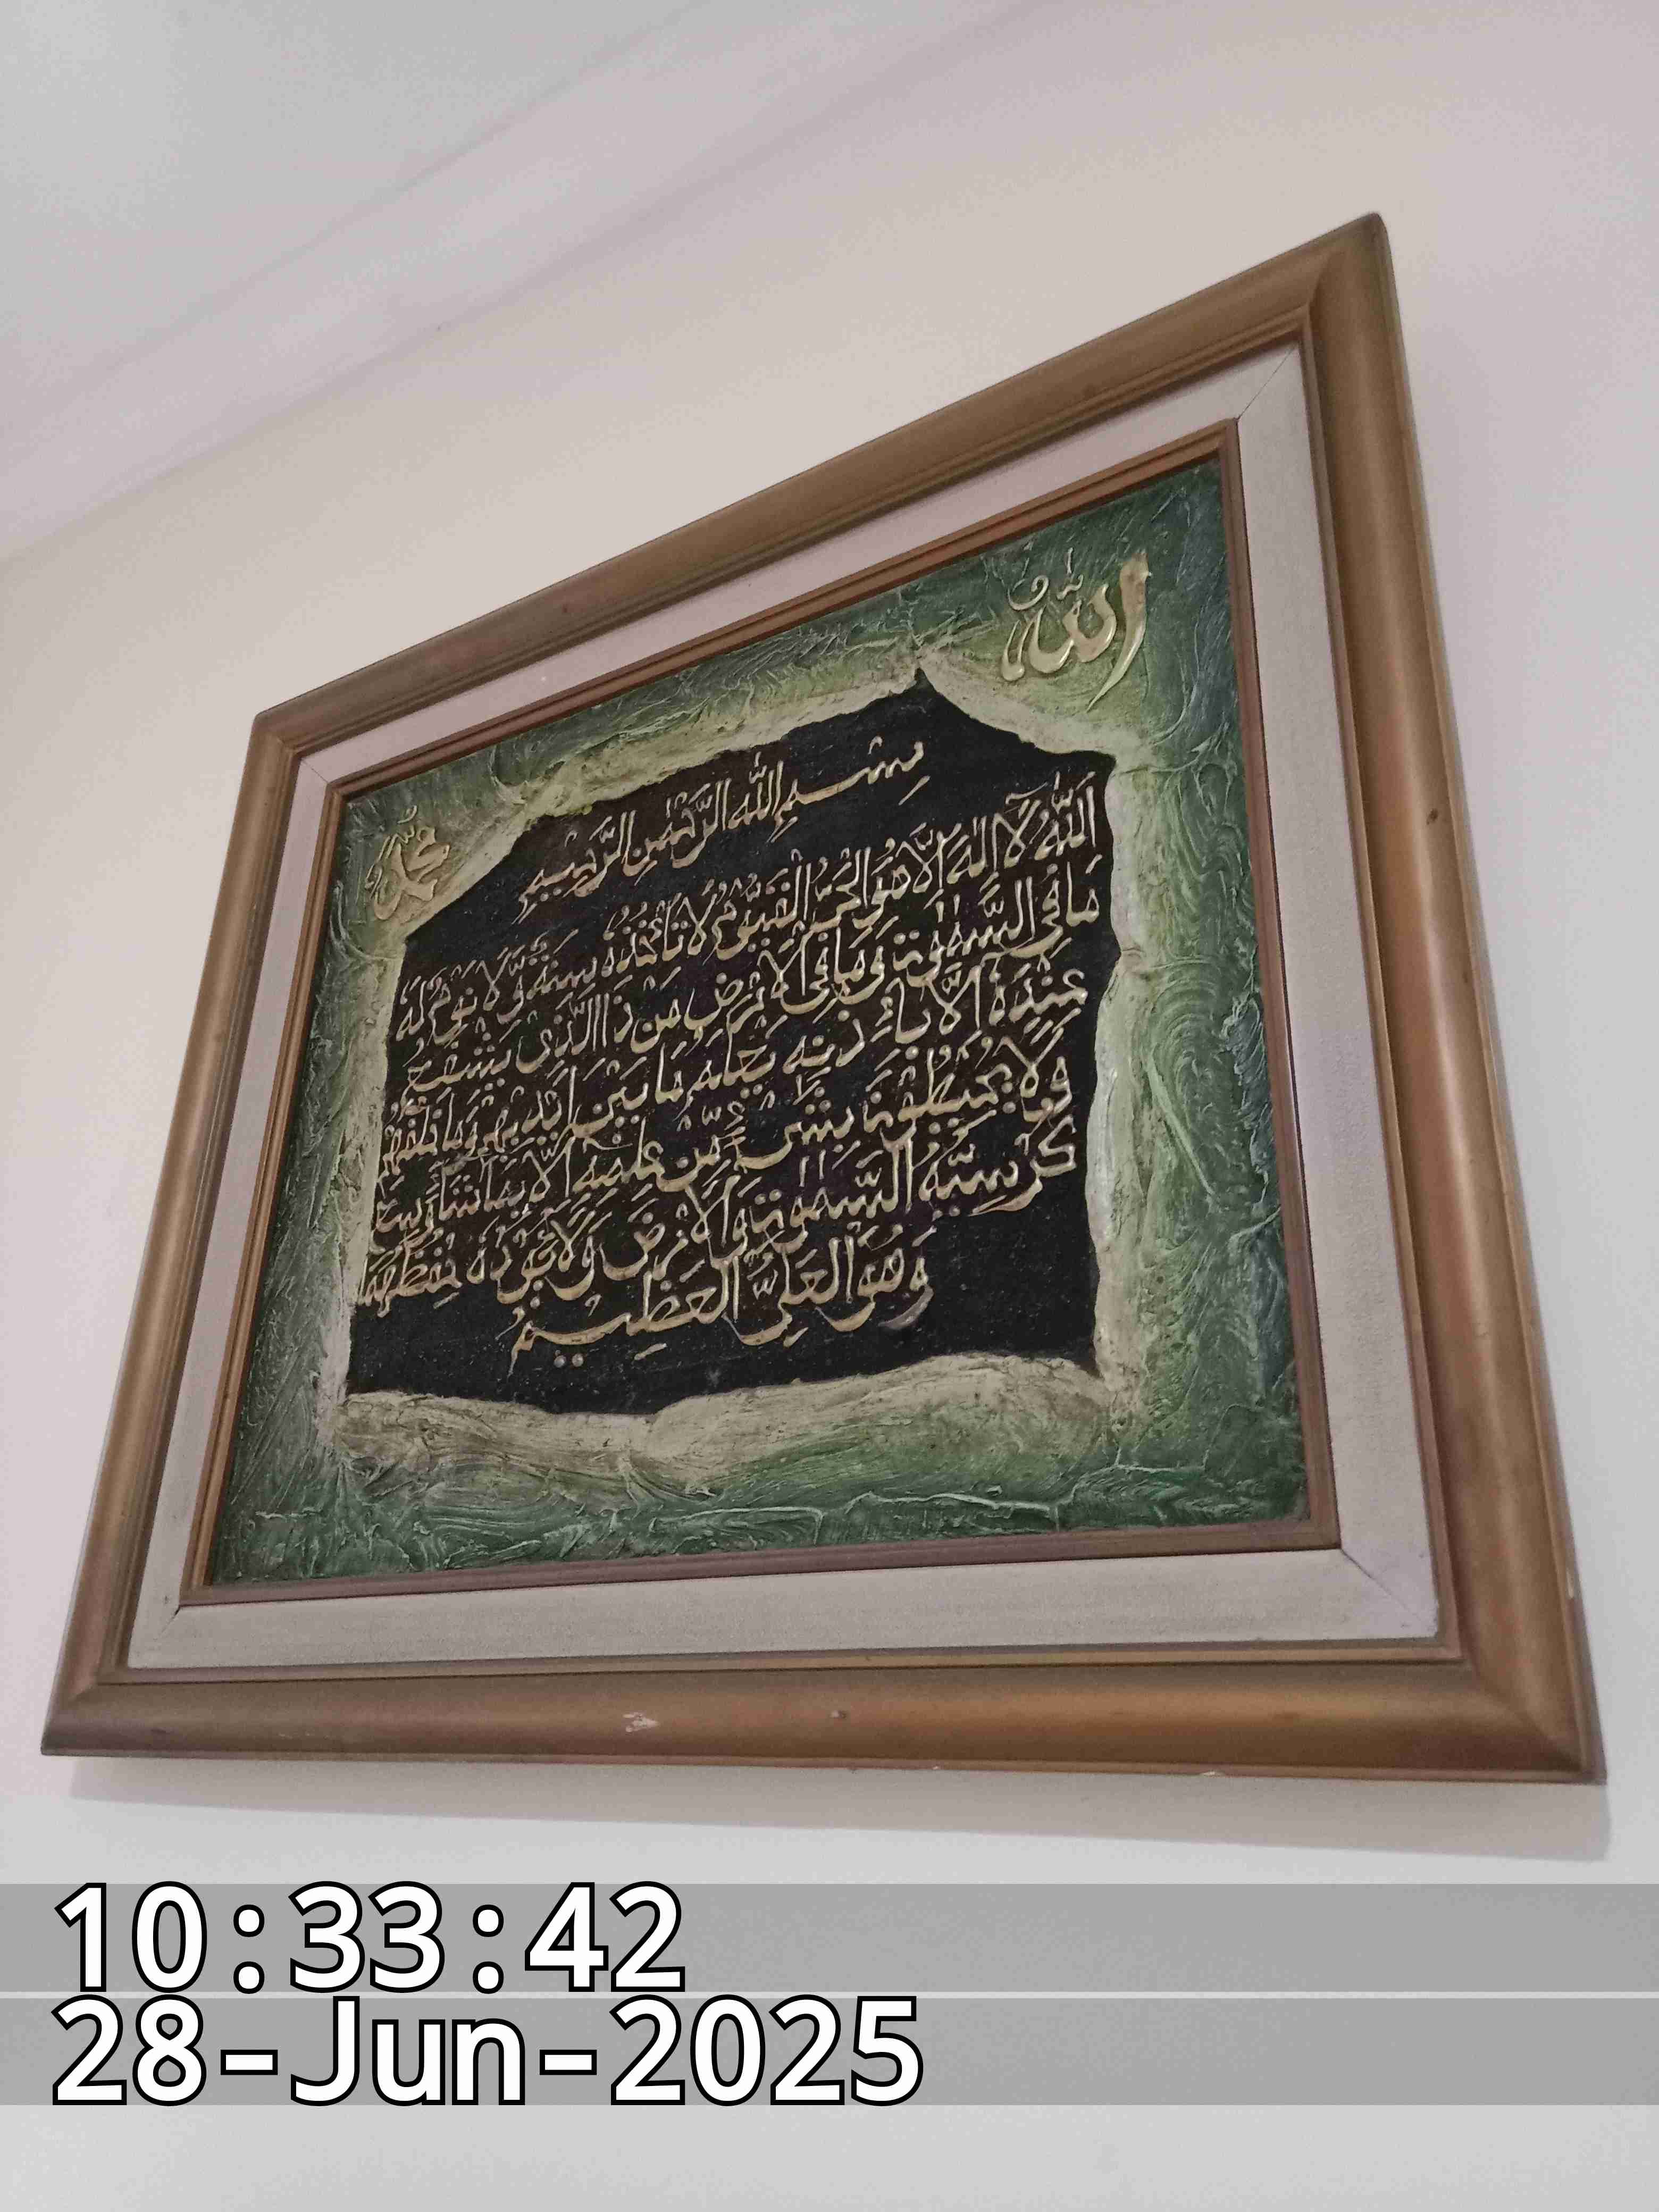 الله
محمد
بِسْمِ اللّٰهِ الرَّحْمٰنِ الرَّحِيْمِ
اَللّٰهُ لَآ اِلٰهَ اِلَّا هُوَ الْحَيُّ الْقَيُّوْمُ لَا تَأْخُذُهٗ سِنَةٌ وَّلَا نَوْمٌ لَهٗ
مَا فِى السَّمٰوٰتِ وَمَا فِى الْاَرْضِ مَنْ ذَا الَّذِىْ يَشْفَعُ
عِنْدَهٗ اِلَّا بِاِذْنِهٖ يَعْلَمُ مَا بَيْنَ اَيْدِيْهِمْ وَمَا خَلْفَهُمْ
وَلَا يُحِيْطُوْنَ بِشَيْءٍ مِّنْ عِلْمِهٖ اِلَّا بِمَا شَآءَ وَسِعَ
كُرْسِيُّهُ السَّمٰوٰتِ وَالْاَرْضَ وَلَا يَئُوْدُهٗ حِفْظُهُمَا
وَهُوَ الْعَلِيُّ الْعَظِيْمُ
10:33:42
28-Jun-2025